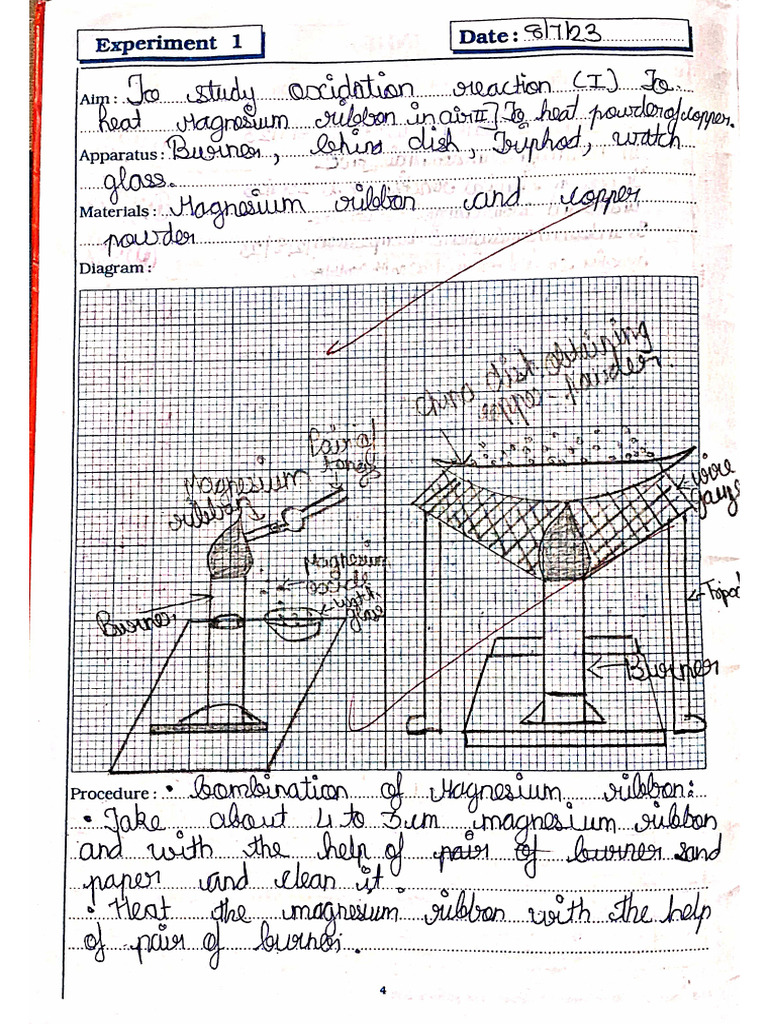 Experiment 1
Date: 8/7/23
Aim: To study oxidation reaction (I) To
heat Magnesium ribbon in air II] To heat powder of copper.
Apparatus: Burner, China dish, Triphod, watch
glass.
Materials: Magnesium ribbon and copper
powder
Diagram:
china dish obtaining
copper powder
Pair of
tongs
Magnesium
ribbon
wire
gauze
Magnesium
Burner
Tripod
Burner
Procedure: • Combination of Magnesium ribbon:
• Take about 4 to 5 cm magnesium ribbon
and with the help of pair of burner sand
paper and clean it.
• Heat the magnesium ribbon with the help
of pair of burner.
4